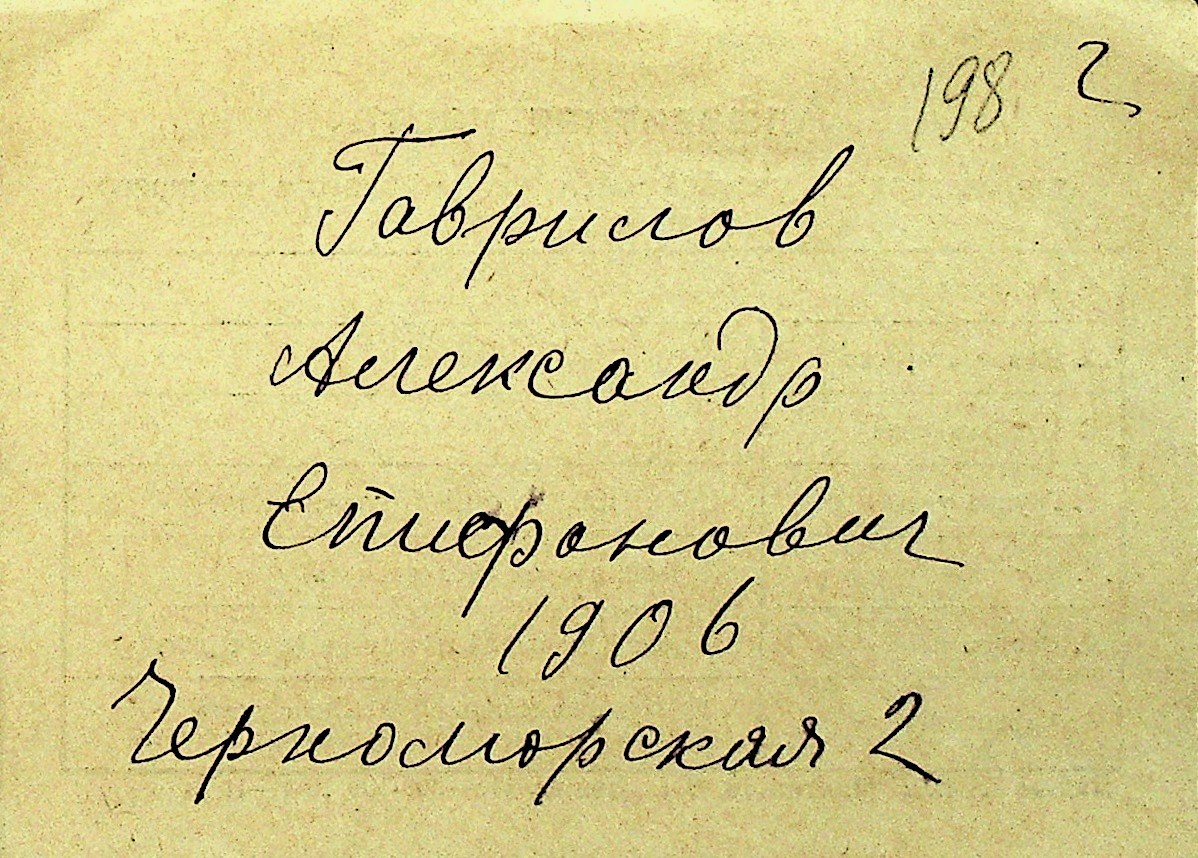 198 2
Гаврилов
Александр
Епифонович
1906
Черноморская 2